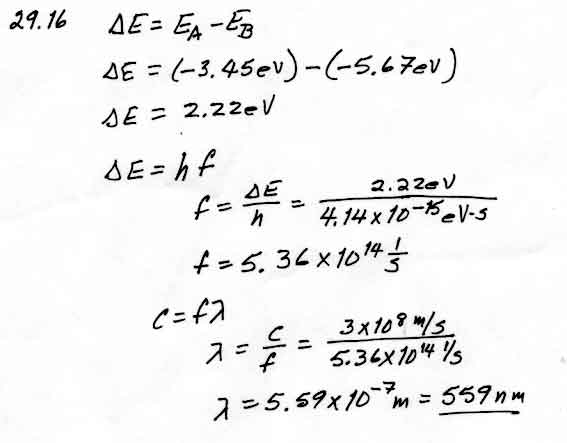 29.16 ΔE = E_A - E_B
ΔE = (-3.45eV) - (-5.67eV)
ΔE = 2.22eV
ΔE = hf
f = ΔE/h = 2.22eV / 4.14 x 10^-15 eV-s
f = 5.36 x 10^14 1/s
c = fλ
λ = c/f = 3 x 10^8 m/s / 5.36 x 10^14 1/s
λ = 5.59 x 10^-7 m = 559 nm